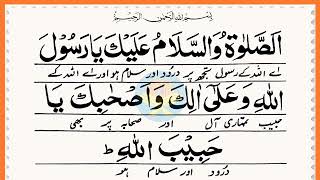 بِسْمِ اللهِ الرَّحْمٰنِ الرَّحِيْمِ
اَلصَّلٰوةُ وَالسَّلَامُ عَلَيْكَ يَارَسُوْلَ
اے اللہ کے رسول تجھ پر درود اور سلام ہو اور اے اللہ کے
اللهِ وَعَلٰى اٰلِكَ وَاَصْحٰبِكَ يَا
حبیب تمہاری آل اور صحابہ پر بھی
حَبِيْبَ اللهِ ط
درود اور سلام ہو